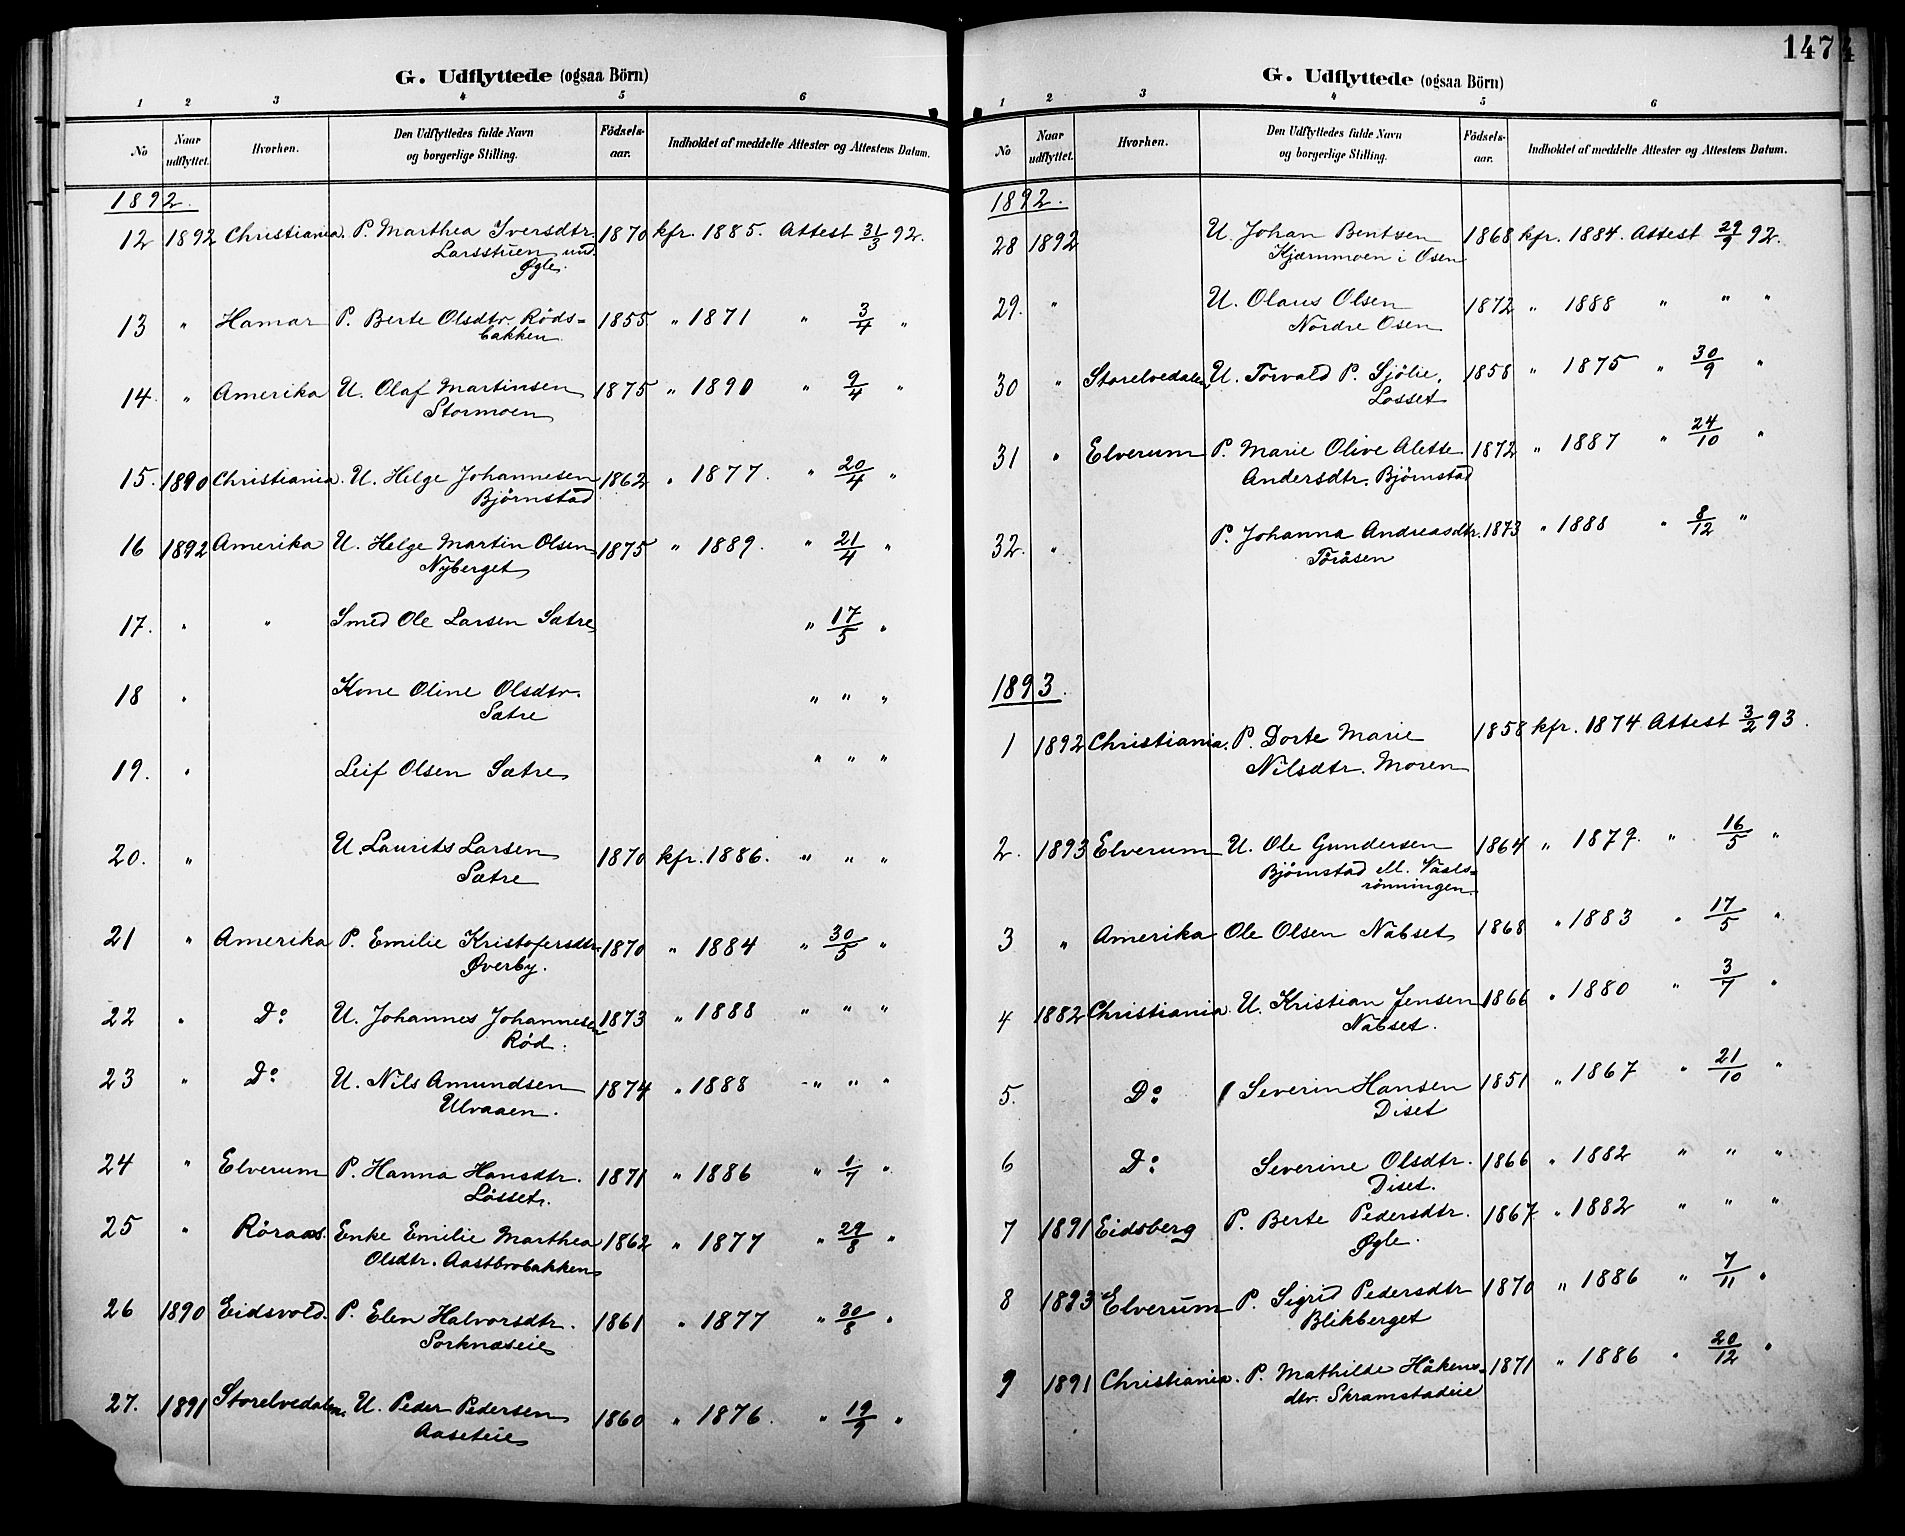 G. Udflyttede (ogsaa Börn)
1 2 3 4 5 6
No Naar udflyttet. Hvorhen. Den Udflyttedes fulde Navn og borgerlige Stilling. Födsels-aar. Indholdet af meddelte Attester og Attestens Datum.
1892.
12 1892 Christiania. P. Marthea Iversdtr. 1870 kfr. 1885. Attest 31/3 92.
Larsstuen und.
Øgle.
13 " Hamar P. Berte Olsdtr. Røds- 1855 " 1871 " 3/4 "
bakken
14. " Amerika U. Olaf Martinsen 1875 " 1890 " 9/4 "
Stormoen
15. 1890 Christiania. U. Helge Johannesen 1862 " 1877. " 20/4 "
Bjørnstad
16 1892 Amerika U. Helge Martin Olsen 1875 " 1889. " 21/4 "
Nyberget
17. " " Smed Ole Larsen Sætre " 17/5 "
18 " Kone Oline Olsdtr. " " "
Sætre
19. " Leif Olsen Sætre " " "
20. " U. Laurits Larsen 1870 kfr. 1886. " " "
Sætre
21 " Amerika P. Emilie Kristofersdtr. 1870 " 1884 " 30/5 "
Øverby.
22 " Do U. Johannes Johannesen 1873 " 1888 " " "
Rød.
23 " Do U. Nils Amundsen 1874 " 1888 " " "
Ulvaaen.
24 " Elverum P. Hanna Hansdtr. 1871 " 1886 " 1/7 "
Løsset.
25 " Röraas. Enke Emilie Marthea 1862 " 1877 " 29/8 "
Olsdtr. Aastbrobakken
26 1890 Eidsvold. P. Elen Halvorsdtr. 1861 " 1877 " 30/8 "
Sorknæseie
27. 1891 Storelvedalen. U. Peder Pedersen 1860 " 1876. " 19/9 "
Aaseteie
147
G. Udflyttede (ogsaa Börn)
1 2 3 4 5 6
No Naar udflyttet. Hvorhen. Den Udflyttedes fulde Navn og borgerlige Stilling. Födsels-aar. Indholdet af meddelte Attester og Attestens Datum.
1892.
28 1892 U. Johan Bentsen 1868 kfr. 1884. Attest 29/9 92.
Kjærnmoen i Osen
29. " U. Olaus Olsen 1872 " 1888 " " "
Nordre Osen
30 " Storelvedalen U. Torvald P. Sjölie, 1858 " 1875 " 30/9 "
Losset
31 " Elverum P. Marie Olive Alette 1872 " 1887 " 24/10 "
Andersdtr. Bjørnstad
32. " P. Johanna Andreasdtr. 1873 " 1888 " 8/12 "
Töråsen
1893.
1 1892 Christiania. P. Dorte Marie 1858 kfr. 1874 Attest 3/2 93.
Nilsdtr. Moren
2. 1893 Elverum U. Ole Gundersen 1864 " 1879. " 16/5 "
Bjørnstad
rønningen.
3 " Amerika Ole Olsen Nabset 1868 " 1883 " 17/5 "
4 1882 Christiania U. Kristian Jensen 1866 " 1880 " 3/7 "
Nabset.
5. Do Severin Hansen 1851 " 1867 " 21/10 "
Diset
6 Do Severine Olsdtr. 1866 " 1882 " " "
Diset.
7 1891 Eidsberg P. Berte Pedersdtr. 1867 " 1882 " " "
Øgle.
8 1893 Elverum P. Sigrid Pedersdtr 1870 " 1886 " 7/11 "
Blikberget
9 1891 Christiania. P. Mathilde Håkens- 1871 " 1886 " 20/12 "
dtr. Skramstadeie